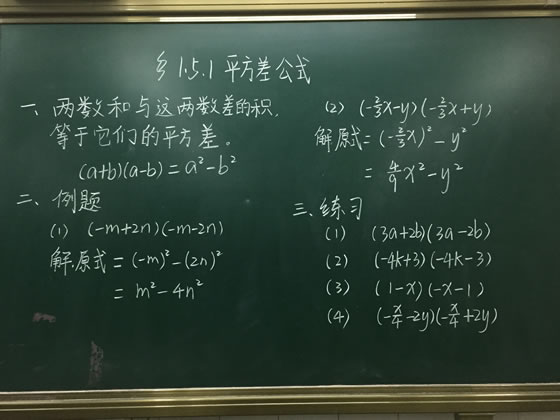 §1.5.1 平方差公式
一、两数和与这两数差的积,
等于它们的平方差。
(a+b)(a-b)=a²-b²
二、例题
(1) (-m+2n)(-m-2n)
解:原式=(-m)²-(2n)²
=m²-4n²
(2) (-2/3x-y)(-2/3x+y)
解原式=(-2/3x)²-y²
=4/9x²-y²
三、练习
(1) (3a+2b)(3a-2b)
(2) (-4k+3)(-4k-3)
(3) (1-x)(-x-1)
(4) (-x/4-2y)(-x/4+2y)